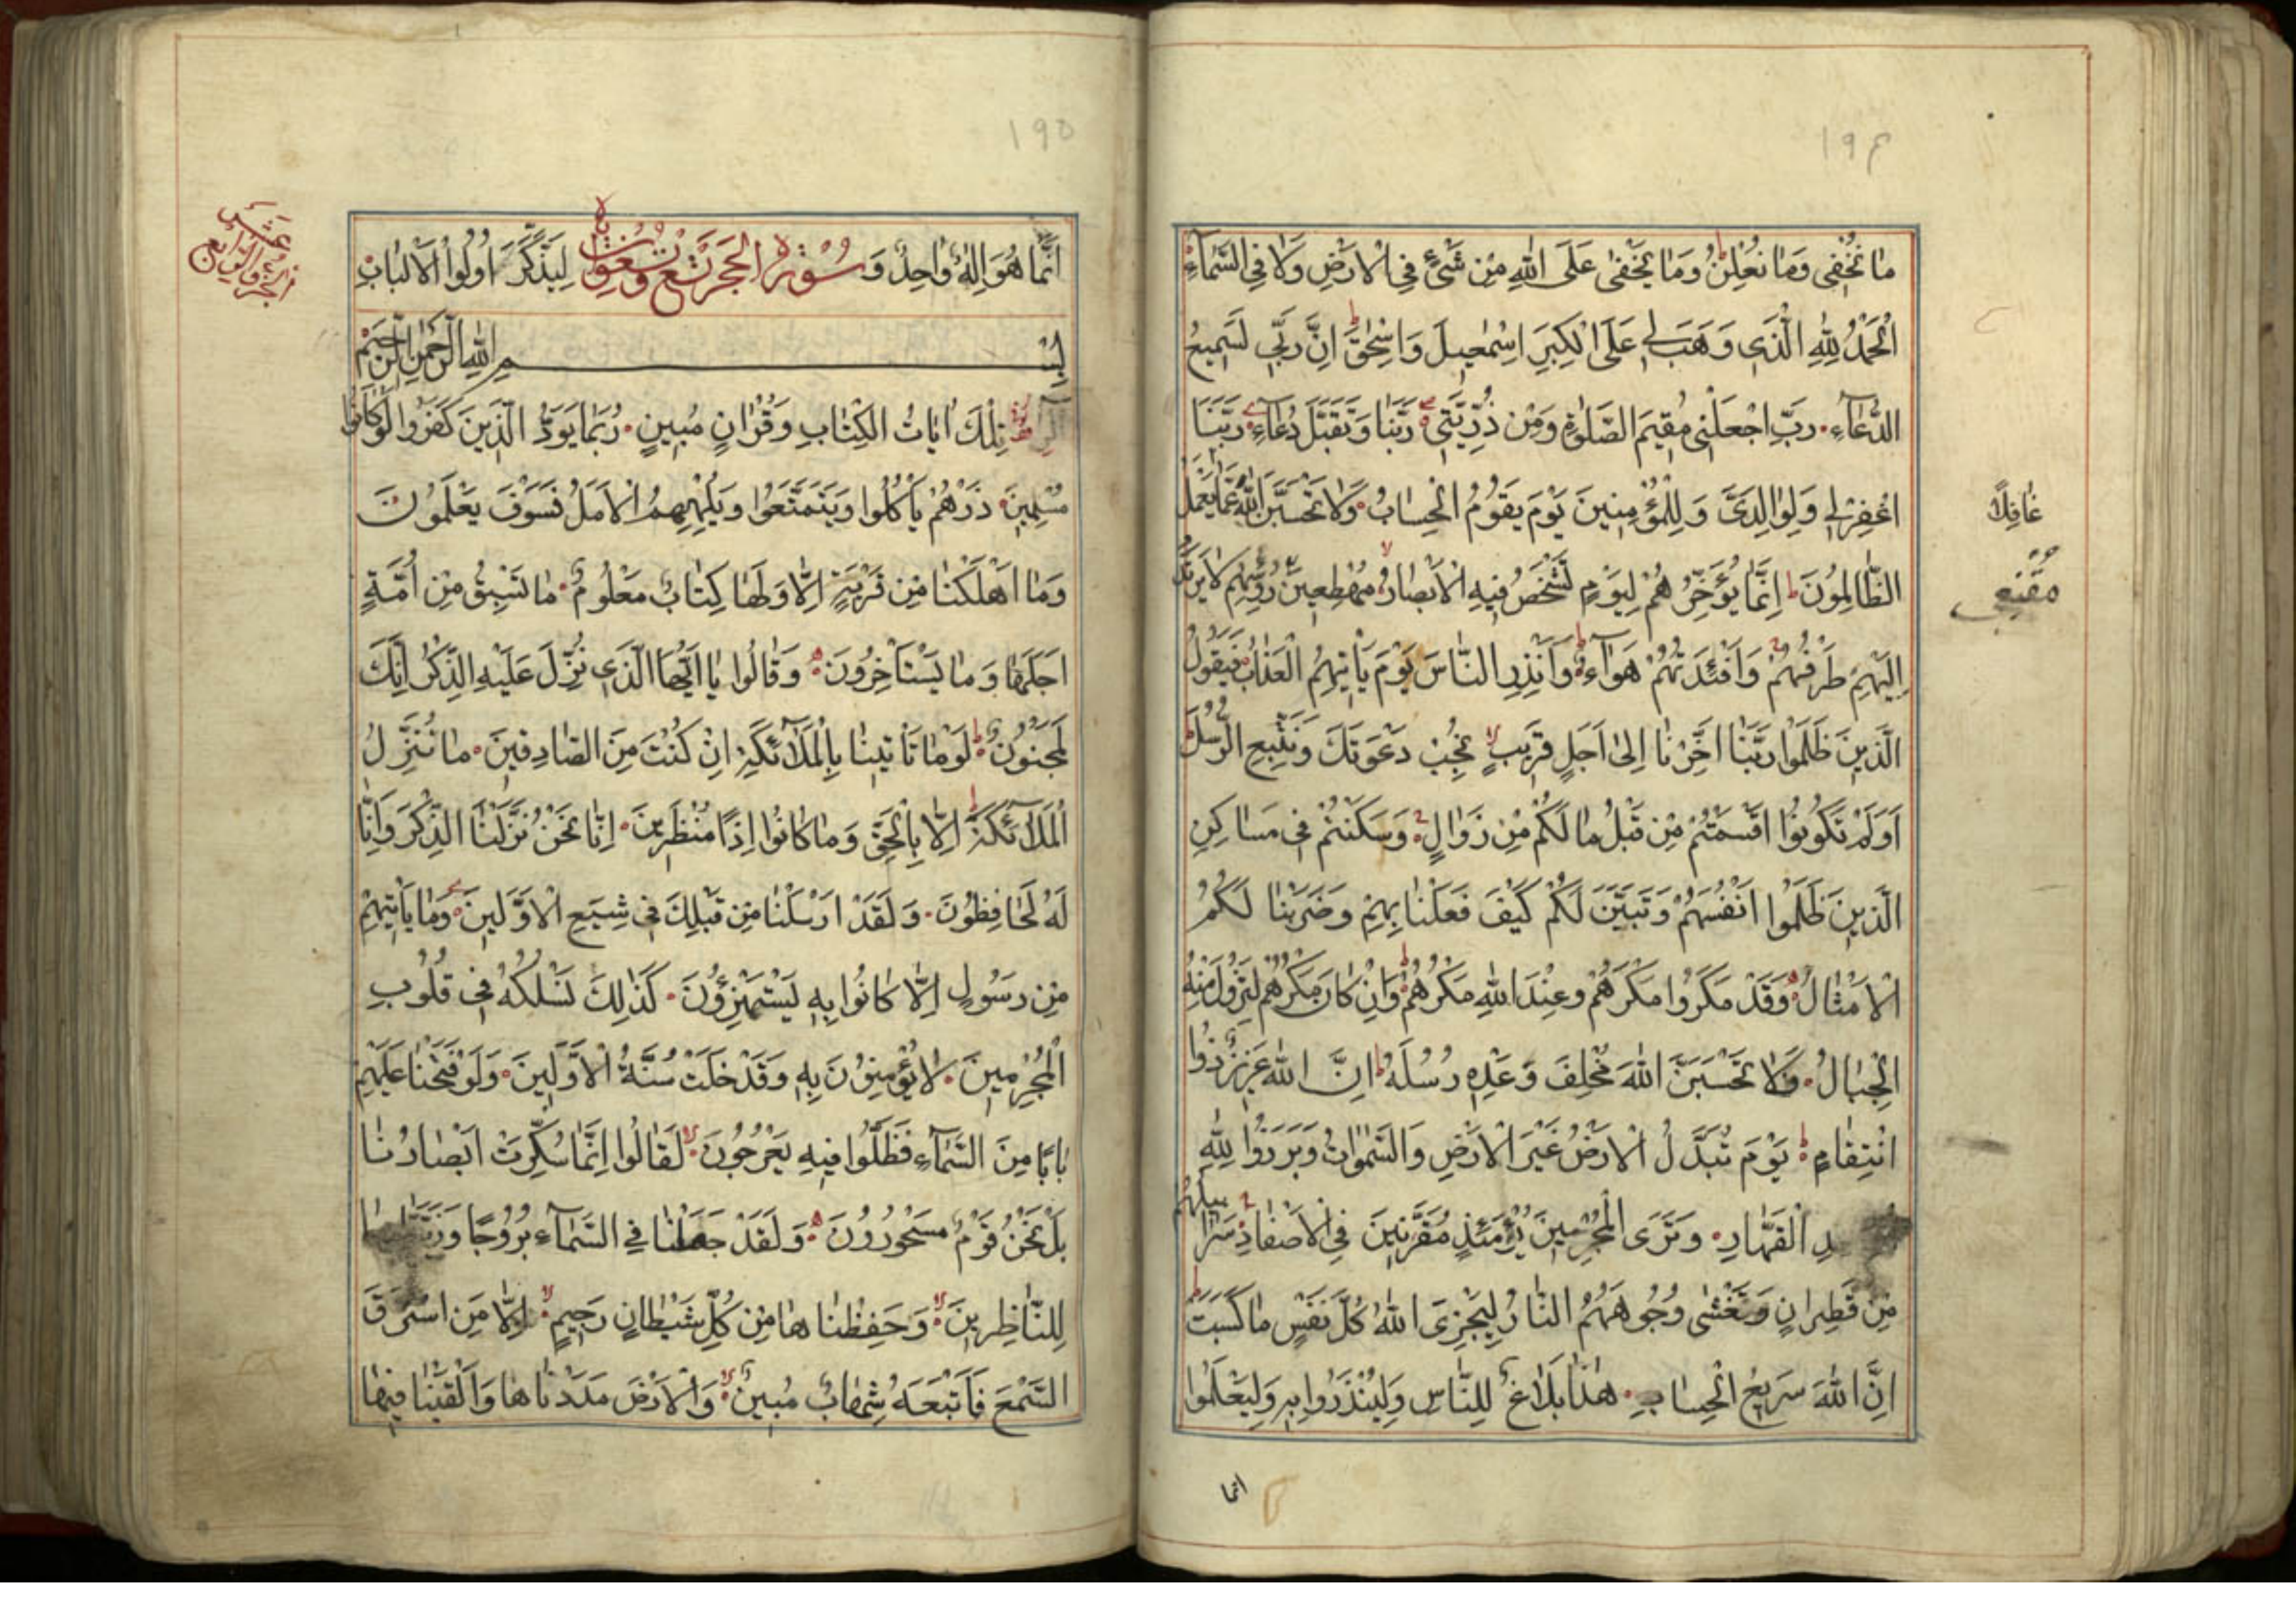 ١٩٤
ما نُخْفِي وَمَا نُعْلِنُ وَمَا يَخْفٰى عَلَى اللهِ مِنْ شَيْءٍ فِي الْاَرْضِ وَلَا فِي السَّمَآءِ
اَلْحَمْدُ لِلّٰهِ الَّذِي وَهَبَ لِي عَلَى الْكِبَرِ اِسْمٰعِيلَ وَاِسْحٰقَ اِنَّ رَبِّي لَسَمِيعُ
الدُّعَآءِ رَبِّ اجْعَلْنِي مُقِيمَ الصَّلٰوةِ وَمِنْ ذُرِّيَّتِي رَبَّنَا وَتَقَبَّلْ دُعَآءِ رَبَّنَا
اغْفِرْ لِي وَلِوَالِدَيَّ وَلِلْمُؤْمِنِينَ يَوْمَ يَقُومُ الْحِسَابُ وَلَا تَحْسَبَنَّ اللهَ عَمَّا يَعْمَلُ
غَافِلًا
الظَّالِمُونَ اِنَّمَا يُؤَخِّرُهُمْ لِيَوْمٍ تَشْخَصُ فِيهِ الْاَبْصَارُ مُهْطِعِينَ رُؤُسِهِمْ لَا يَرْتَدُّ
مُقْنِعِي
اِلَيْهِمْ طَرْفُهُمْ وَاَفْئِدَتُهُمْ هَوَآءٌ وَاَنْذِرِ النَّاسَ يَوْمَ يَأْتِيهِمُ الْعَذَابُ فَيَقُولُ
الَّذِينَ ظَلَمُوا رَبَّنَا اَخِّرْنَا اِلٰى اَجَلٍ قَرِيبٍ نُجِبْ دَعْوَتَكَ وَنَتَّبِعِ الرُّسُلَ
اَوَلَمْ تَكُونُوا اَقْسَمْتُمْ مِنْ قَبْلُ مَا لَكُمْ مِنْ زَوَالٍ وَسَكَنْتُمْ فِي مَسَاكِنِ
الَّذِينَ ظَلَمُوا اَنْفُسَهُمْ وَتَبَيَّنَ لَكُمْ كَيْفَ فَعَلْنَا بِهِمْ وَضَرَبْنَا لَكُمُ
الْاَمْثَالَ وَقَدْ مَكَرُوا مَكْرَهُمْ وَعِنْدَ اللهِ مَكْرُهُمْ وَاِنْ كَانَ مَكْرُهُمْ لِتَزُولَ مِنْهُ
الْجِبَالُ فَلَا تَحْسَبَنَّ اللهَ مُخْلِفَ وَعْدِهِ رُسُلَهُ اِنَّ اللهَ عَزِيزٌ ذُوا
انْتِقَامٍ يَوْمَ تُبَدَّلُ الْاَرْضُ غَيْرَ الْاَرْضِ وَالسَّمٰوَاتُ وَبَرَزُوا لِلّٰهِ
الْقَهَّارِ وَتَرَى الْمُجْرِمِينَ يَوْمَئِذٍ مُقَرَّنِينَ فِي الْاَصْفَادِ سَرَابِيلُهُمْ
مِنْ قَطِرَانٍ وَتَغْشٰى وُجُوهَهُمُ النَّارُ لِيَجْزِيَ اللهُ كُلَّ نَفْسٍ مَا كَسَبَتْ
اِنَّ اللهَ سَرِيعُ الْحِسَابِ هٰذَا بَلَاغٌ لِلنَّاسِ وَلِيُنْذَرُوا بِهِ وَلِيَعْلَمُوا
انما
١٩٥
اَنَّمَا هُوَ اِلٰهٌ وَاحِدٌ وَ سُوْرَة الْحِجْرِ تِسْعٌ وَتِسْعُونَ اٰيَة لِيَذَّكَّرَ اُولُوا الْاَلْبَابِ
عشر الجزؤ الرابع
بِسْمِ اللهِ الرَّحْمٰنِ الرَّحِيمِ
الٓرٰ تِلْكَ اٰيَاتُ الْكِتَابِ وَقُرْاٰنٍ مُبِينٍ رُبَمَا يَوَدُّ الَّذِينَ كَفَرُوا لَوْ كَانُوا
مُسْلِمِينَ ذَرْهُمْ يَأْكُلُوا وَيَتَمَتَّعُوا وَيُلْهِهِمُ الْاَمَلُ فَسَوْفَ يَعْلَمُونَ
وَمَا اَهْلَكْنَا مِنْ قَرْيَةٍ اِلَّا وَلَهَا كِتَابٌ مَعْلُومٌ مَا تَسْبِقُ مِنْ اُمَّةٍ
اَجَلَهَا وَمَا يَسْتَأْخِرُونَ وَقَالُوا يَا اَيُّهَا الَّذِي نُزِّلَ عَلَيْهِ الذِّكْرُ اِنَّكَ
لَمَجْنُونٌ لَوْ مَا تَأْتِينَا بِالْمَلَآئِكَةِ اِنْ كُنْتَ مِنَ الصَّادِقِينَ مَا نُنَزِّلُ
الْمَلَآئِكَةَ اِلَّا بِالْحَقِّ وَمَا كَانُوا اِذًا مُنْظَرِينَ اِنَّا نَحْنُ نَزَّلْنَا الذِّكْرَ وَاِنَّا
لَهُ لَحَافِظُونَ وَلَقَدْ اَرْسَلْنَا مِنْ قَبْلِكَ فِي شِيَعِ الْاَوَّلِينَ وَمَا يَأْتِيهِمْ
مِنْ رَسُولٍ اِلَّا كَانُوا بِهِ يَسْتَهْزِؤُنَ كَذٰلِكَ نَسْلُكُهُ فِي قُلُوبِ
الْمُجْرِمِينَ لَا يُؤْمِنُونَ بِهِ وَقَدْ خَلَتْ سُنَّةُ الْاَوَّلِينَ وَلَوْ فَتَحْنَا عَلَيْهِمْ
بَابًا مِنَ السَّمَآءِ فَظَلُّوا فِيهِ يَعْرُجُونَ لَقَالُوا اِنَّمَا سُكِّرَتْ اَبْصَارُنَا
بَلْ نَحْنُ قَوْمٌ مَسْحُورُونَ وَلَقَدْ جَعَلْنَا فِي السَّمَآءِ بُرُوجًا وَزَيَّنَّاهَا
لِلنَّاظِرِينَ وَحَفِظْنَاهَا مِنْ كُلِّ شَيْطَانٍ رَجِيمٍ اِلَّا مَنِ اسْتَرَقَ
السَّمْعَ فَاَتْبَعَهُ شِهَابٌ مُبِينٌ وَالْاَرْضَ مَدَدْنَاهَا وَاَلْقَيْنَا فِيهَا